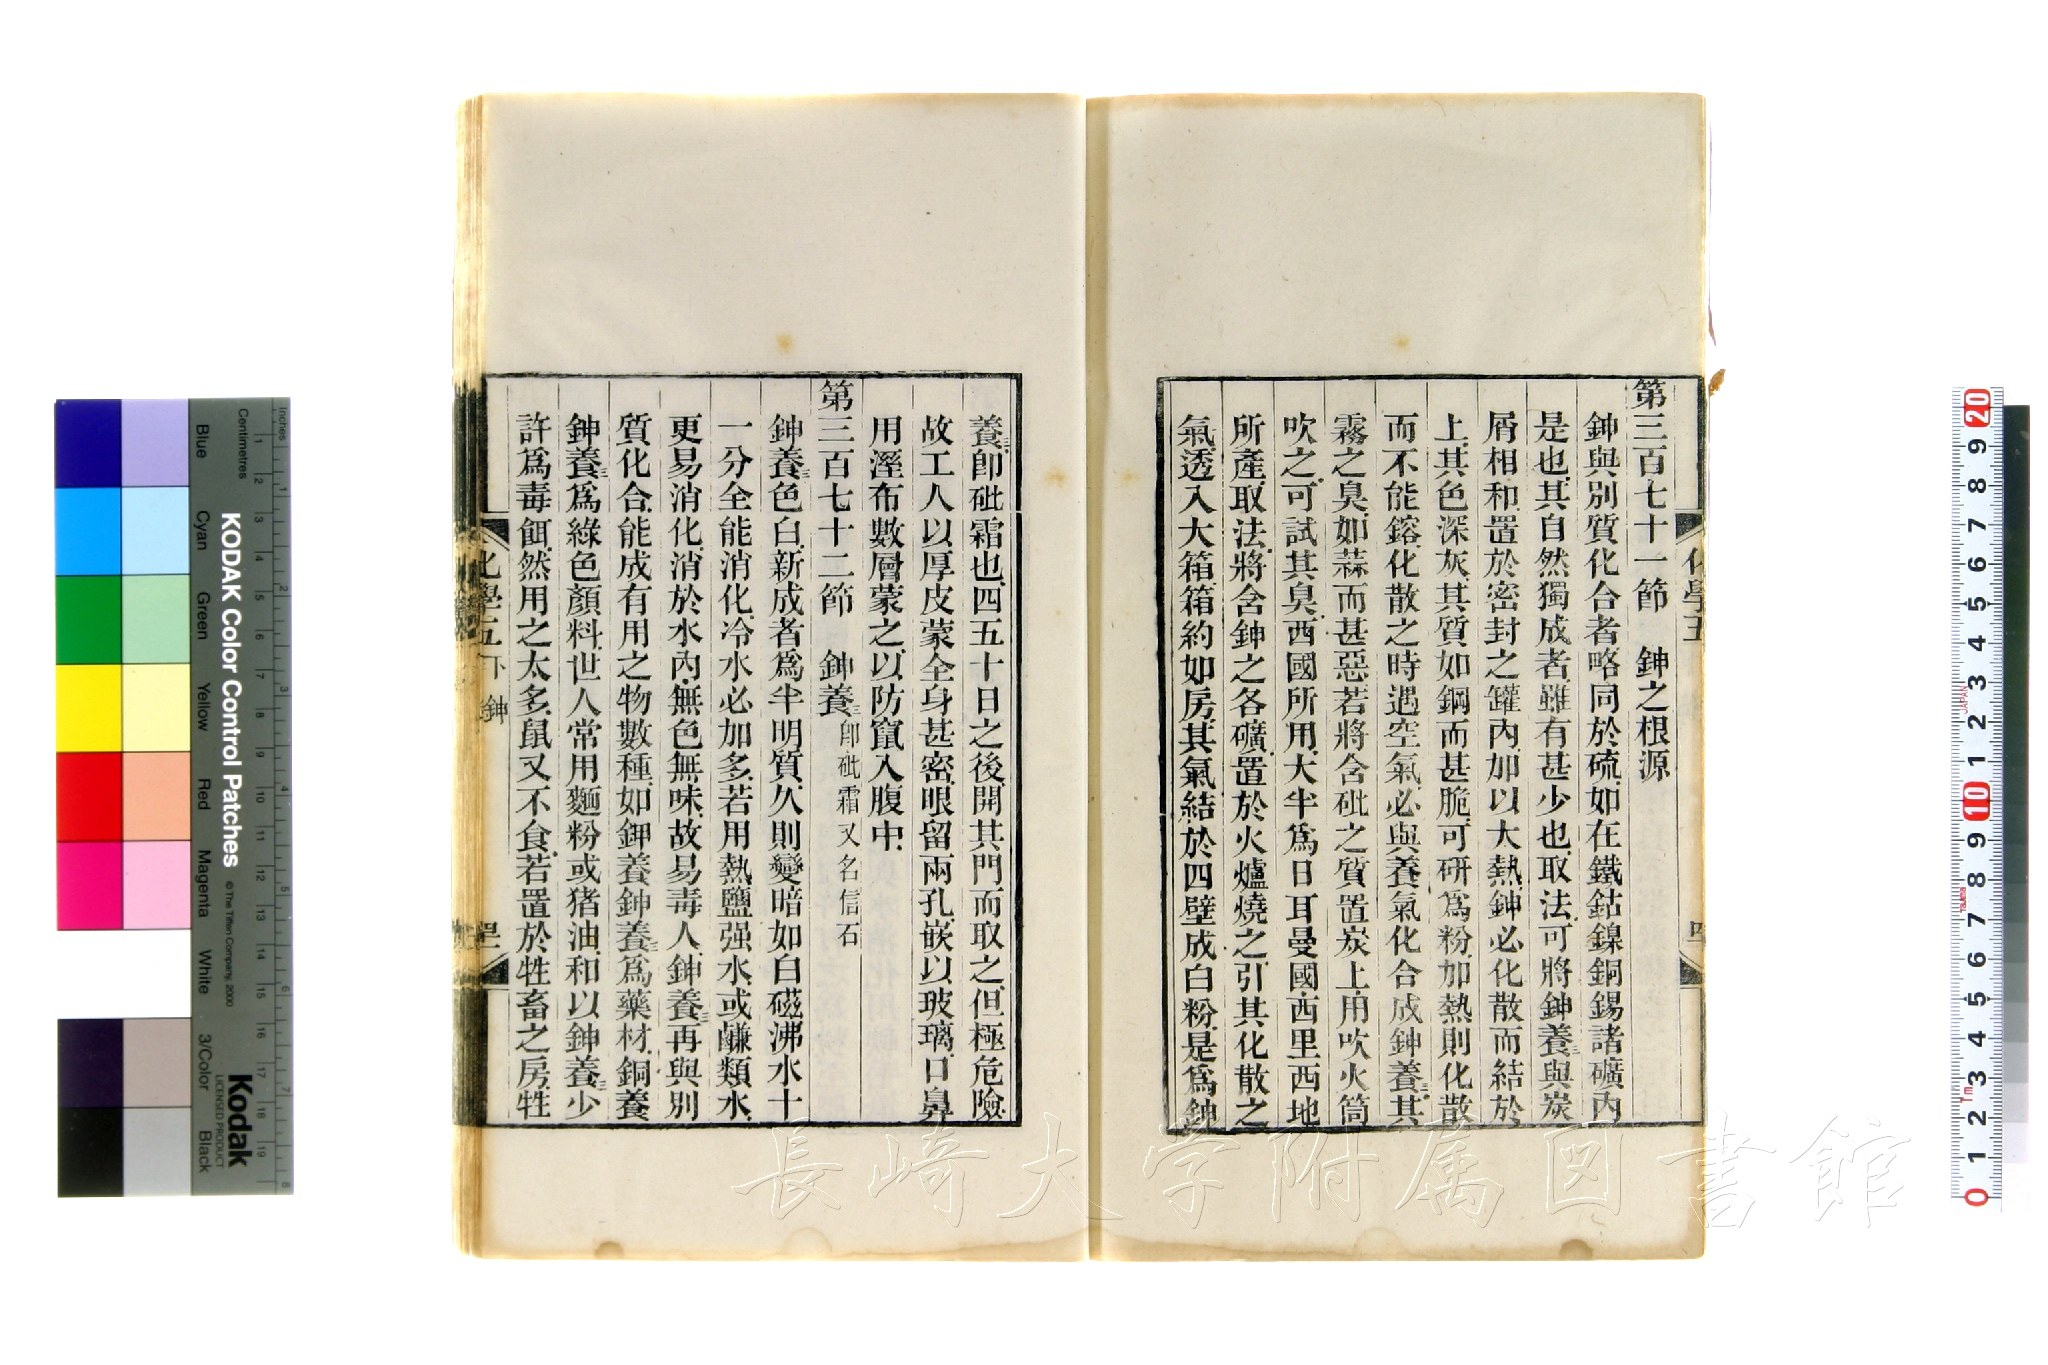 第三百七十一節　鉮之根源
鉮與別質化合者略同於硫如在鐵鈷鎳銅錫諸礦内
是也其自然獨成者雖有甚少也取法可將鉮養三與炭
屑相和置於密封之罐内加以大熱鉮必化散而結於
上其色深灰其質如鋼而甚脆可研爲粉加熱則化散
而不能鎔化散之時遇空氣必與養氣化合成鉮養三其
霧之臭如蒜而甚惡若將含砒之質置炭上用吹火筒
吹之可試其臭西國所用大半爲日耳曼國西里西地
所產取法將含鉮之各礦置於火爐燒之引其化散之
氣透入大箱箱約如房其氣結於四壁成白粉是爲鉮
化學五
養三卽砒霜也四五十日之後開其門而取之但極危險
故工人以厚皮蒙全身甚密眼留兩孔嵌以玻璃口鼻
用溼布數層蒙之以防竄入腹中
第三百七十二節　鉮養三卽砒霜又名信石
鉮養三色白新成者爲半明質久則變暗如白磁沸水十
一分全能消化冷水必加多若用熱鹽强水或鹻類水
更易消化消於水內無色無味故易毒人鉮養三再與別
質化合能成有用之物數種如鉮養鉮養三爲藥材銅養
鉮養三爲綠色顏料世人常用麵粉或猪油和以鉮養三少
許爲毒餌然用之太多鼠又不食若置於牲畜之房牲
化學五 下 鉮
長崎大学附属図書館
KODAK Color Control Patches
© The Tiffen Company, 2000
Kodak
LICENSED PRODUCT
Inches
Centimetres
Blue
Cyan
Green
Yellow
Red
Magenta
White
3/Color
Black
JAPAN
Tajima